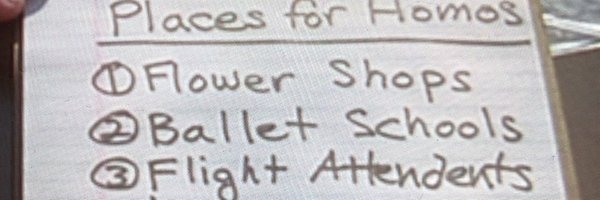 Places for Homos
① Flower Shops
② Ballet Schools
③ Flight Attendents